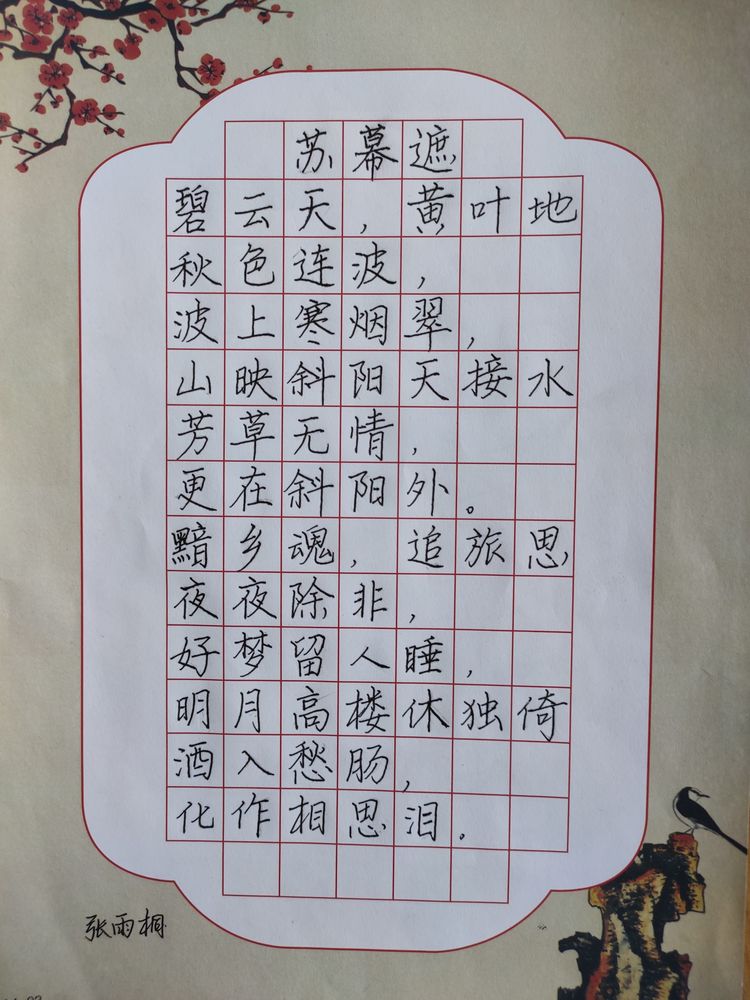 苏幕遮
碧云天，黄叶地
秋色连波，
波上寒烟翠，
山映斜阳天接水
芳草无情，
更在斜阳外。
黯乡魂，追旅思
夜夜除非，
好梦留人睡，
明月高楼休独倚
酒入愁肠，
化作相思泪。
张雨桐